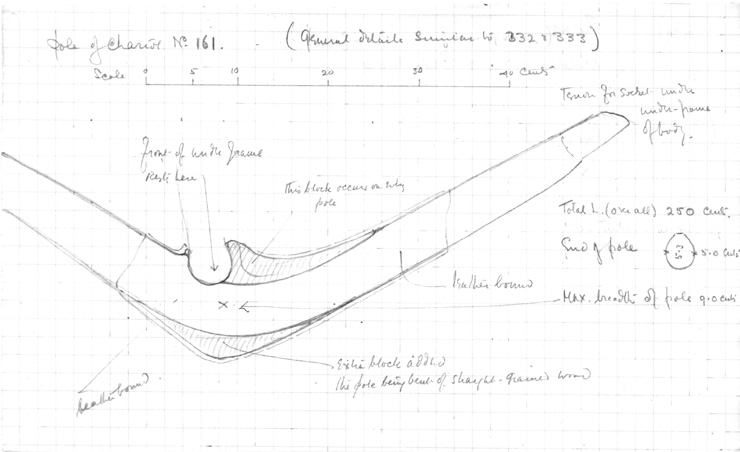 Pole of Chariot No. 161.
(General details similar to 332 & 333)
Scale 0 5 10 20 30 40 Cents
Tenon for socket under
under-frame
of body.
Front of under frame
rests here
This block occurs on only
pole
Total L. (over all) 250 cents.
End of pole 5.0 cents
leather bound
x
Max. breadth of pole 9.0 cents
Extra block added
the pole being bent of straight-grained wood
leather bound